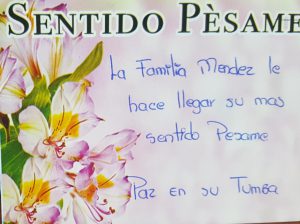 SENTIDO PÈSAME
La Familia Mendez le
hace llegar su mas
sentido Pesame
Paz en su Tumba